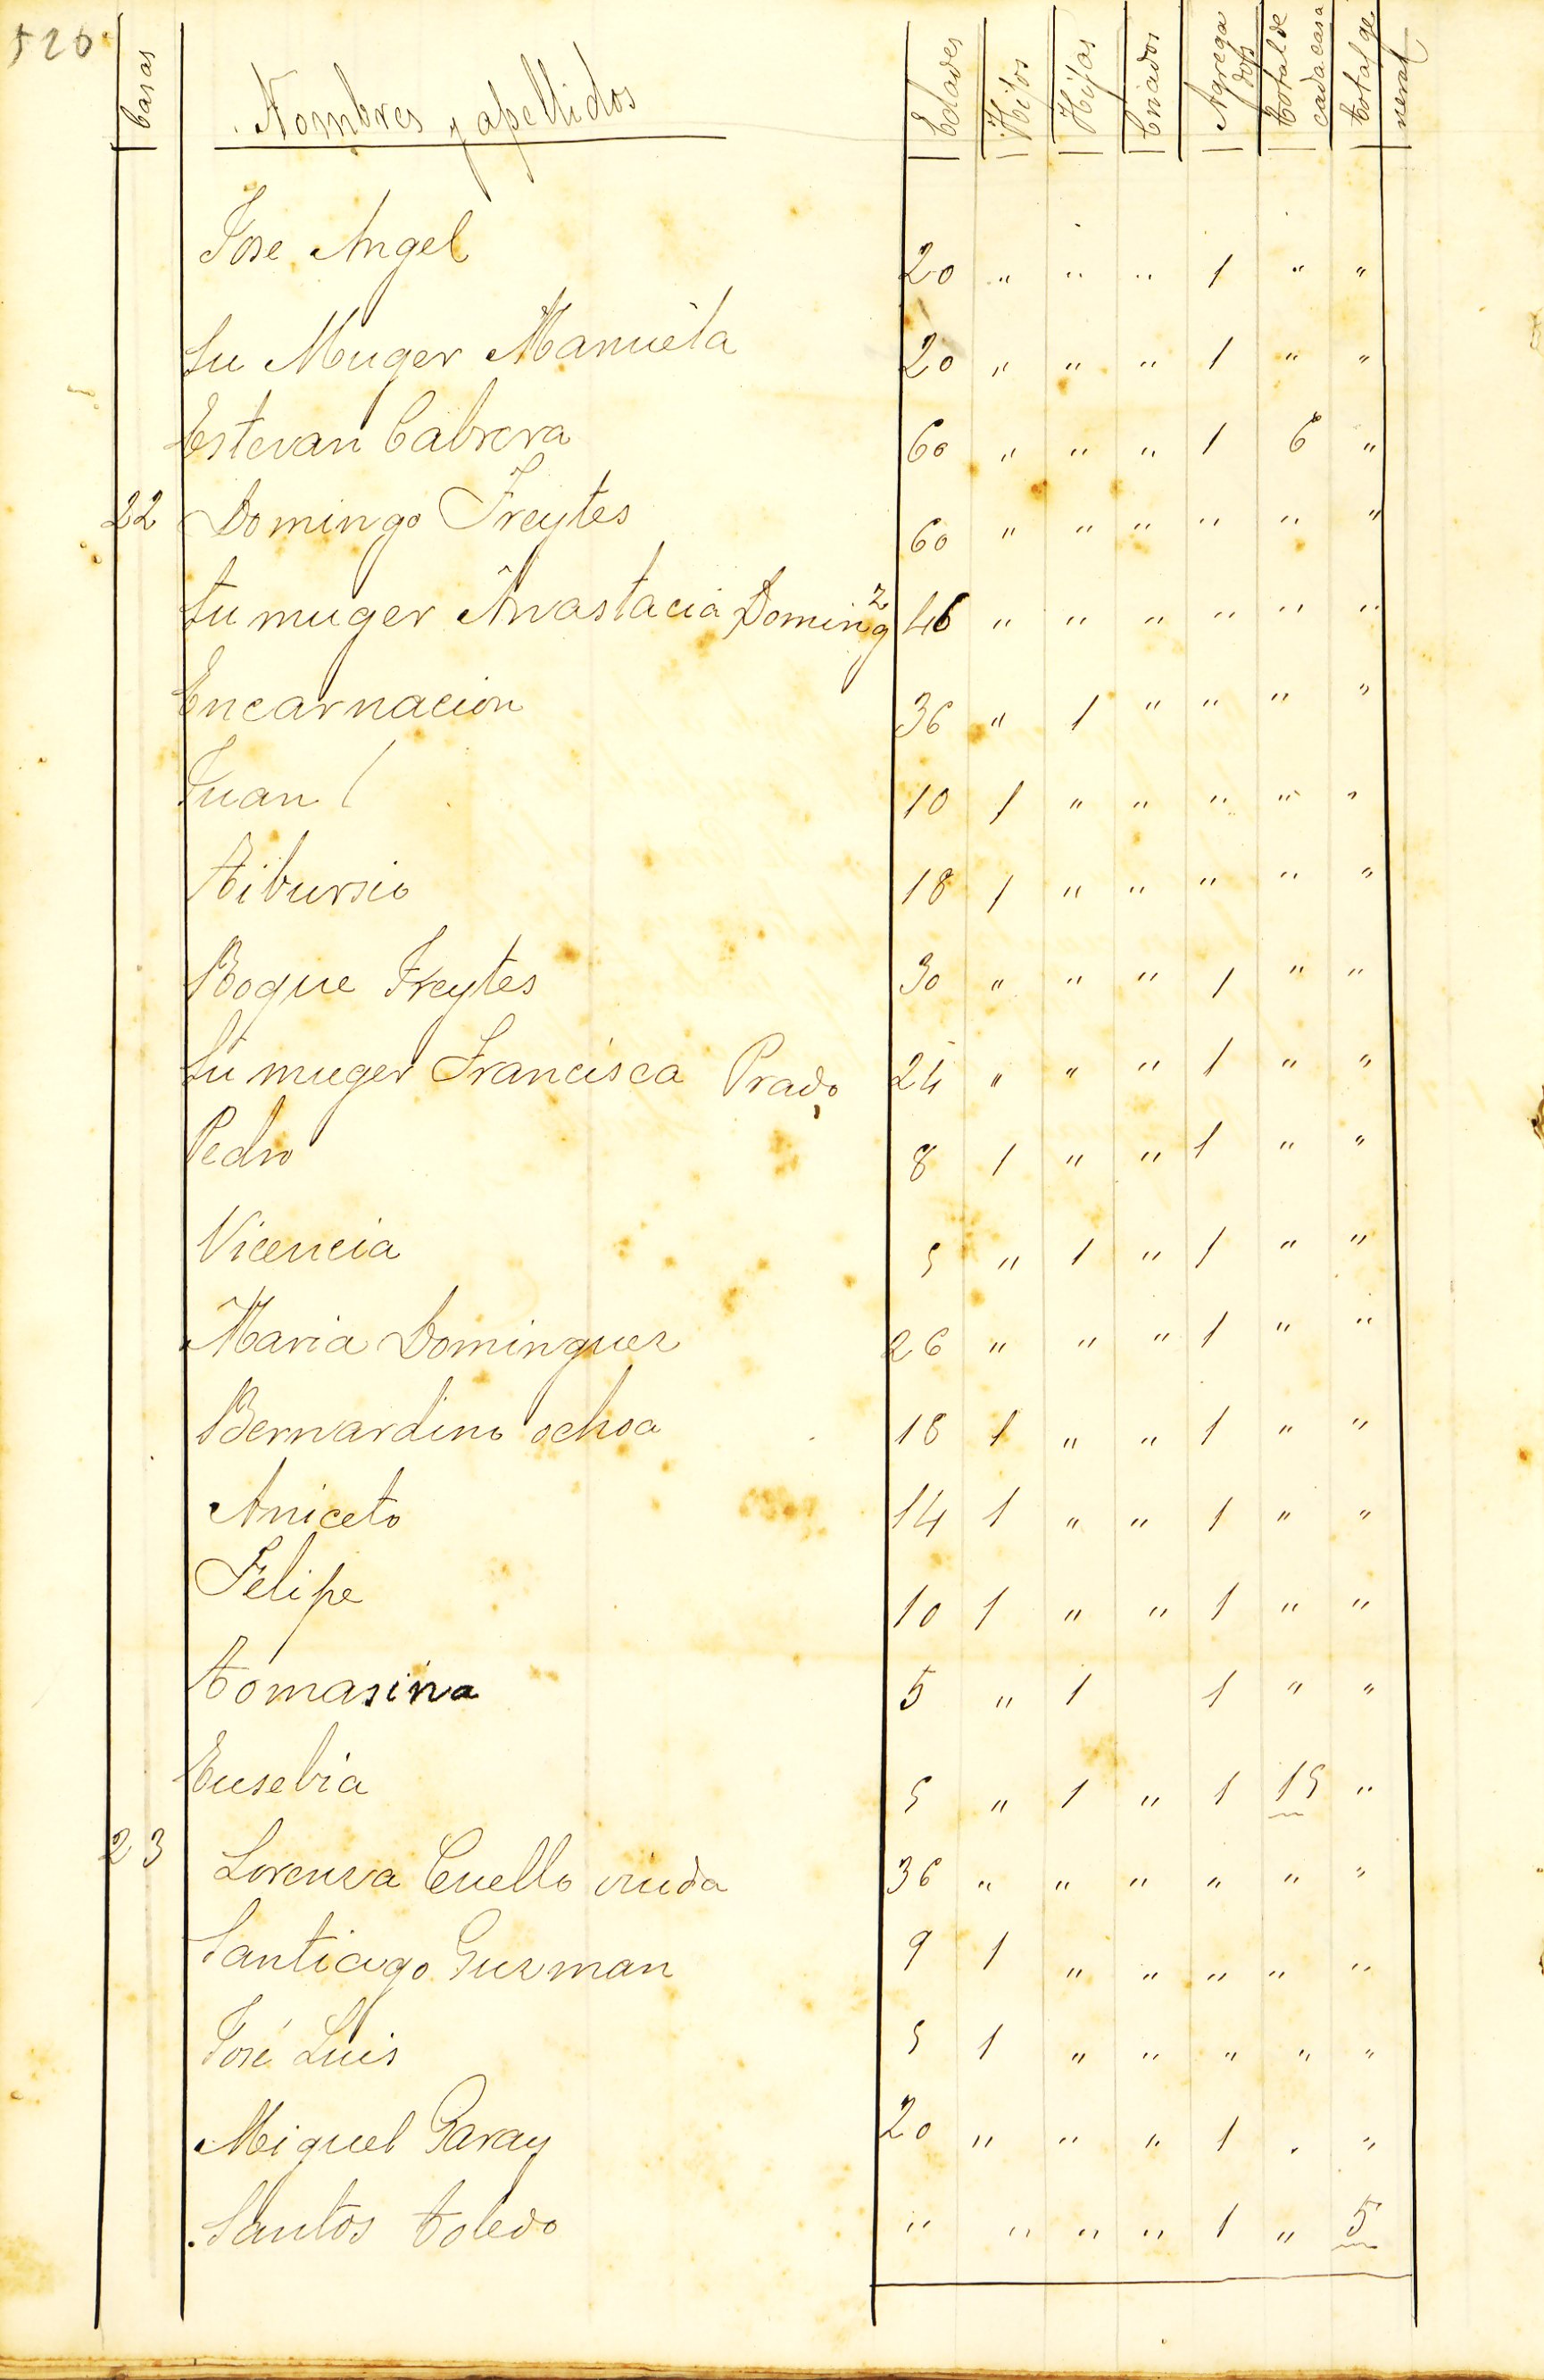 526
Casas Nombres y apellidos Edades Hijos Hijas Criados Agregados Total de cada casa Total general
Jose Angel 20 " " " 1 " "
Su Muger Manuela 20 " " " 1 " "
Estevan Cabrera 60 " " " 1 6 "
22 Domingo Freytes 60 " " " " " "
Su muger Anastacia Doming z 46 " " " " " "
Encarnacion 36 " 1 " " " "
Juan ( 10 1 " " " " "
Tibursio 18 1 " " " " "
Roque Freytes 30 " " " 1 " "
Su muger Francisca Prado 24 " " " 1 " "
Pedro 8 1 " " 1 " "
Vicencia 5 " 1 " 1 " "
Maria Dominguez 26 " " " 1 " "
Bernardino ochoa 18 1 " " 1 " "
Aniceto 14 1 " " 1 " "
Felipe 10 1 " " 1 " "
Tomasina 5 " 1 1 " "
Eusebia 5 " 1 " 1 15 "
23 Lorenza Cuello viuda 36 " " " " " "
Santiago Guzman 9 1 " " " " "
José Luis 5 1 " " " " "
Miguel Garay 20 " " " 1 . "
Santos Toledo " " " " 1 " 5